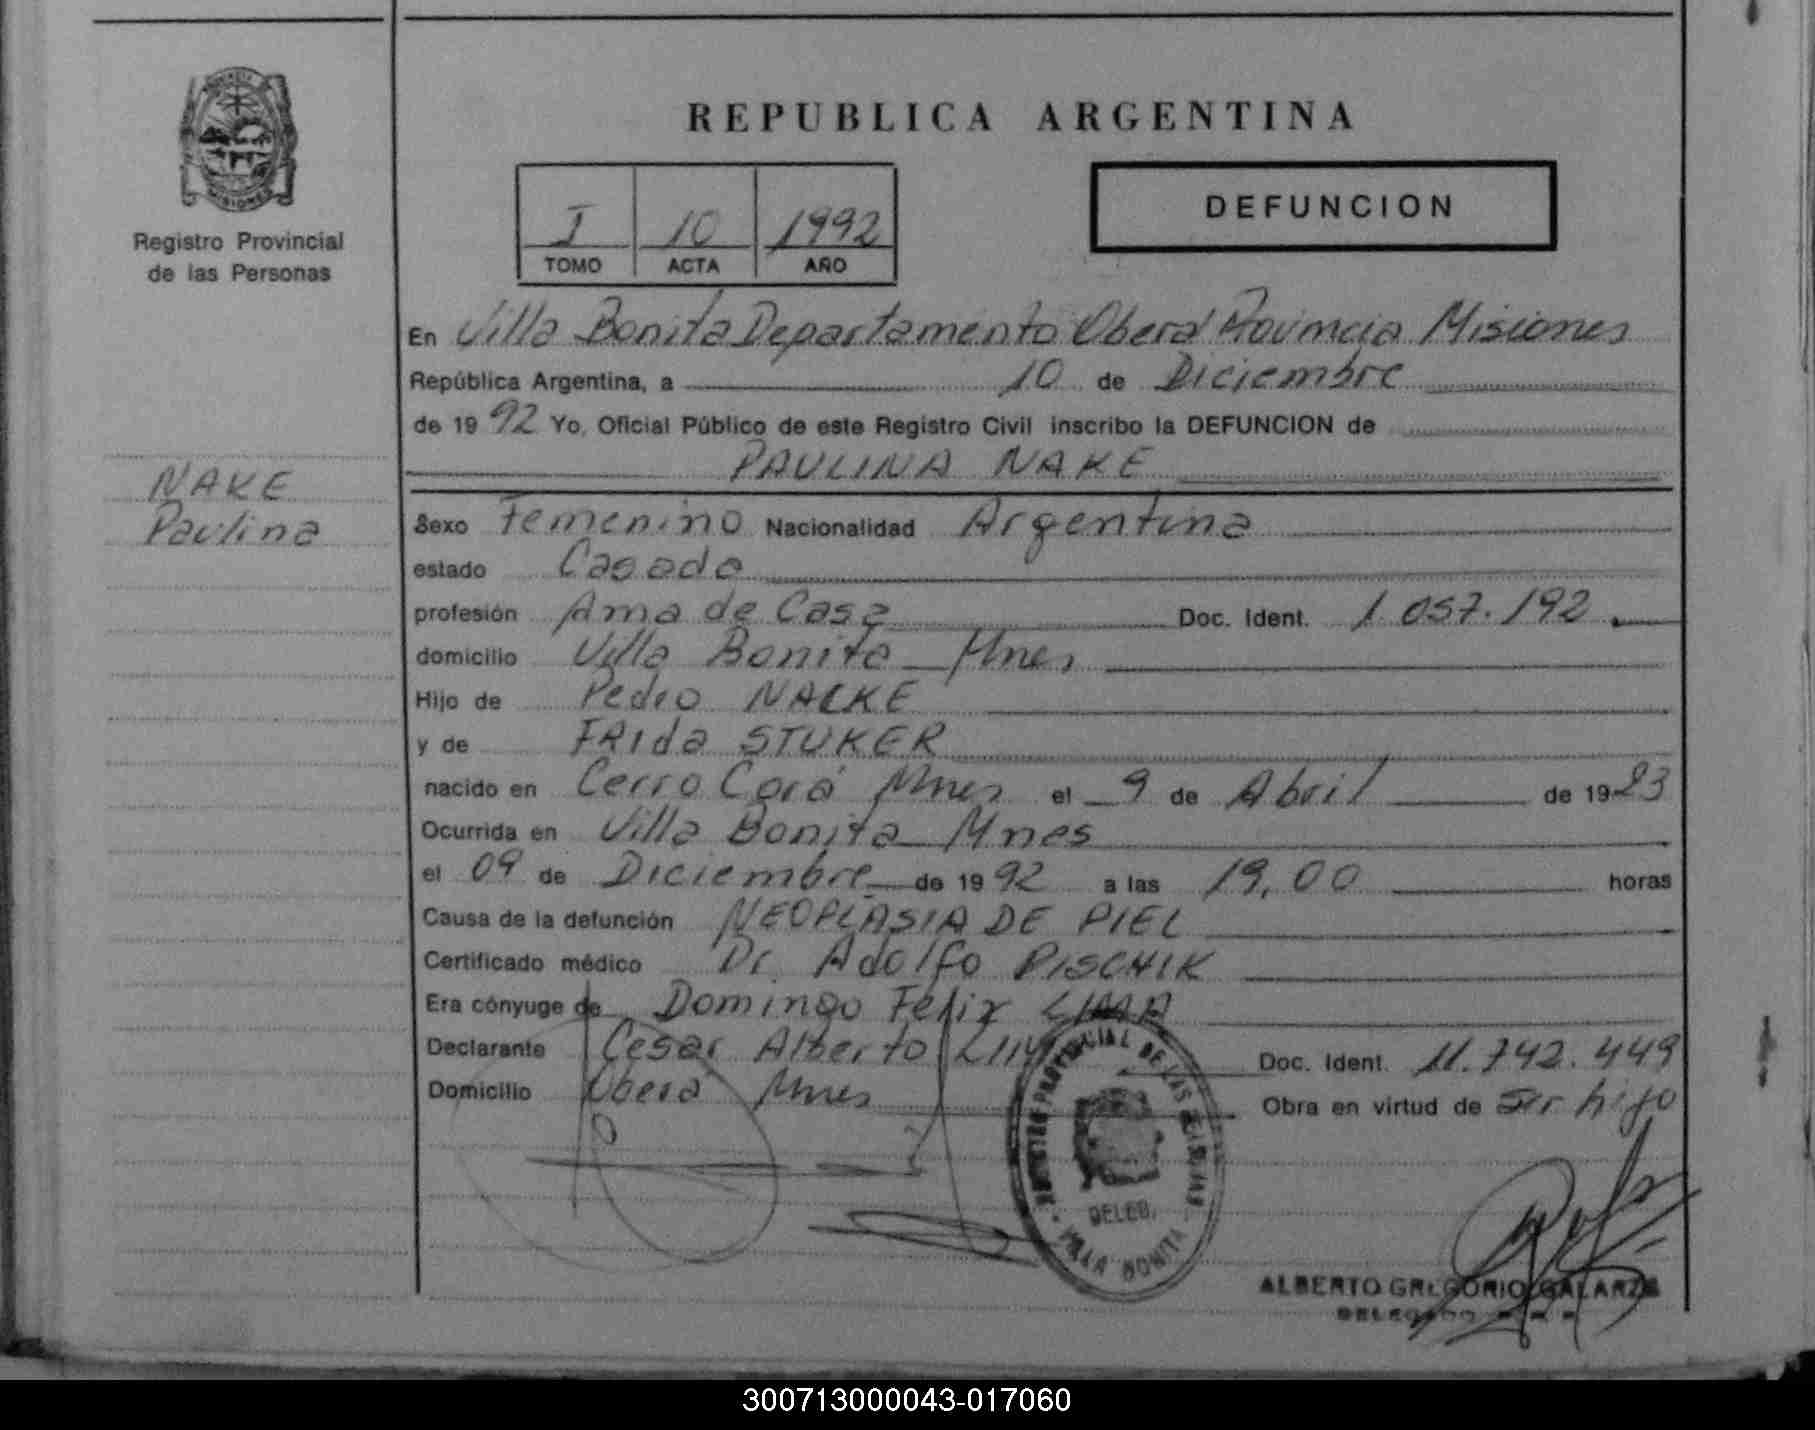 MISIONES
Registro Provincial
de las Personas
NAKE
Paulina
REPUBLICA ARGENTINA
I 10 1992
TOMO ACTA AÑO
DEFUNCION
En Villa Bonita Departamento Oberá Provincia Misiones
República Argentina, a 10 de Diciembre
de 1992 Yo, Oficial Público de este Registro Civil inscribo la DEFUNCION de
PAULINA NAKE
Sexo Femenino Nacionalidad Argentina
estado Casada
profesión Ama de Casa Doc. Ident. 1.057.192
domicilio Villa Bonita Mnes
Hijo de Pedro NACKE
y de FRIda STUKER
nacido en Cerro Corá Mnes el 9 de Abril de 1923
Ocurrida en Villa Bonita Mnes
el 09 de Diciembre de 1992 a las 19,00 horas
Causa de la defunción NEOPLASIA DE PIEL
Certificado médico Dr. Adolfo PISCHIK
Era cónyuge de Domingo Felix LIMA
Declarante Cesar Alberto Doc. Ident. 11.742.449
Domicilio Obera Mnes Obra en virtud de ser hijo
REGISTRO PROVINCIAL DE LAS PERSONAS
DELEG.
VILLA BONITA
ALBERTO GREGORIO GALARZA
DELEGADO
300713000043-017060